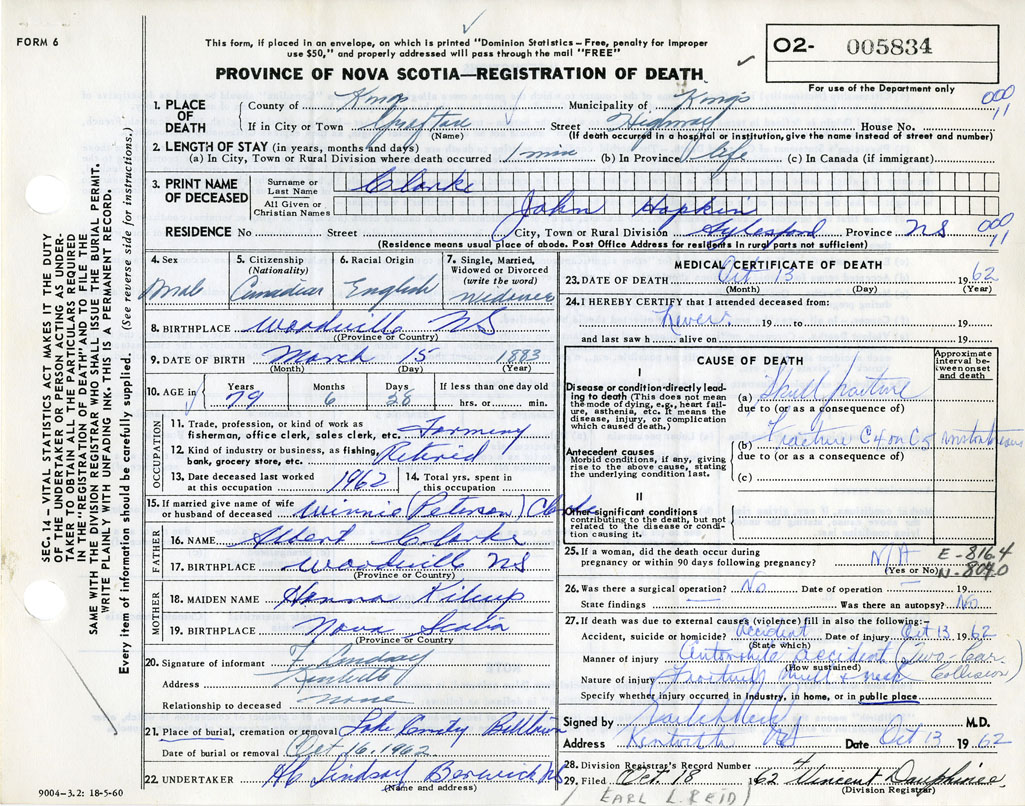 FORM 6
This form, if placed in an envelope, on which is printed "Dominion Statistics – Free, penalty for improper
use $50," and properly addressed will pass through the mail "FREE"
PROVINCE OF NOVA SCOTIA—REGISTRATION OF DEATH
O2- 005834
For use of the Department only
SEC. 14 – VITAL STATISTICS ACT MAKES IT THE DUTY
OF THE UNDERTAKER OR PERSON ACTING AS UNDER-
TAKER TO OBTAIN ALL THE PARTICULARS REQUIRED
IN THE "REGISTRATION OF DEATH" AND TO FILE THE
SAME WITH THE DIVISION REGISTRAR WHO SHALL ISSUE THE BURIAL PERMIT.
WRITE PLAINLY WITH UNFADING INK. THIS IS A PERMANENT RECORD.
Every item of information should be carefully supplied. (See reverse side for instructions.)
1. PLACE OF DEATH
County of Kings Municipality of Kings
000 11
If in City or Town Grafton Street Highway House No.
(Name) (If death occurred in a hospital or institution, give the name instead of street and number)
2. LENGTH OF STAY (in years, months and days)
(a) In City, Town or Rural Division where death occurred 1 min (b) In Province life (c) In Canada (if immigrant)
3. PRINT NAME OF DECEASED
Surname or Last Name Clarke
All Given or Christian Names John Hopkin
RESIDENCE No Street City, Town or Rural Division Aylesford Province NS
000 11
(Residence means usual place of abode. Post Office Address for residents in rural parts not sufficient)
4. Sex Male
5. Citizenship (Nationality) Canadian
6. Racial Origin English
7. Single, Married, Widowed or Divorced (write the word) Widower
8. BIRTHPLACE Woodville NS
(Province or Country)
9. DATE OF BIRTH March 15 1883
(Month) (Day) (Year)
10. AGE in Years 79 Months 6 Days 28 If less than one day old hrs. or min.
OCCUPATION
11. Trade, profession, or kind of work as fisherman, office clerk, sales clerk, etc. Farming
12. Kind of industry or business, as fishing, bank, grocery store, etc. Retired
13. Date deceased last worked at this occupation 1962 14. Total yrs. spent in this occupation
15. If married give name of wife or husband of deceased Winnie (Peterson) Clarke
FATHER
16. NAME Albert Clarke
17. BIRTHPLACE Woodville NS
(Province or Country)
MOTHER
18. MAIDEN NAME Hanna Kilcup
19. BIRTHPLACE Nova Scotia
(Province or Country)
20. Signature of informant F. Lindsay
Address
Relationship to deceased none
21. Place of burial, cremation or removal
Date of burial or removal Oct 16, 1962
22. UNDERTAKER Lindsay Berwick NS
(Name and address)
9004-3.2: 18-5-60
MEDICAL CERTIFICATE OF DEATH
23. DATE OF DEATH Oct 13 19 62
(Month) (Day) (Year)
24. I HEREBY CERTIFY that I attended deceased from:
never 19 to 19
and last saw h alive on 19
CAUSE OF DEATH
Approximate interval between onset and death
I
Disease or condition directly leading to death (This does not mean the mode of dying, eg., heart failure, asthenia, etc. It means the disease, injury, or complication which caused death.)
(a) Skull fracture
due to (or as a consequence of)
Antecedent causes
Morbid conditions, if any, giving rise to the above cause, stating the underlying condition last.
(b) Fracture C4 on C5 instantaneous
due to (or as a consequence of)
(c)
II
Other significant conditions contributing to the death, but not related to the disease or condition causing it.
25. If a woman, did the death occur during pregnancy or within 90 days following pregnancy? N/A
(Yes or No)
E-8164
N-8040
26. Was there a surgical operation? No Date of operation 19
State findings Was there an autopsy? No
27. If death was due to external causes (violence) fill in also the following:
Accident, suicide or homicide? Accident Date of injury Oct 13 19 62
(State which)
Manner of injury Automobile accident (Two-Car Collision)
(How sustained)
Nature of injury Fractured skull & neck
Specify whether injury occurred in Industry, in home, or in public place
Signed by M.D.
Address Date Oct 13 19 62
28. Division Registrar's Record Number 4
29. Filed Oct 18 1962 Vincent
(Division Registrar)
EARL L. REID